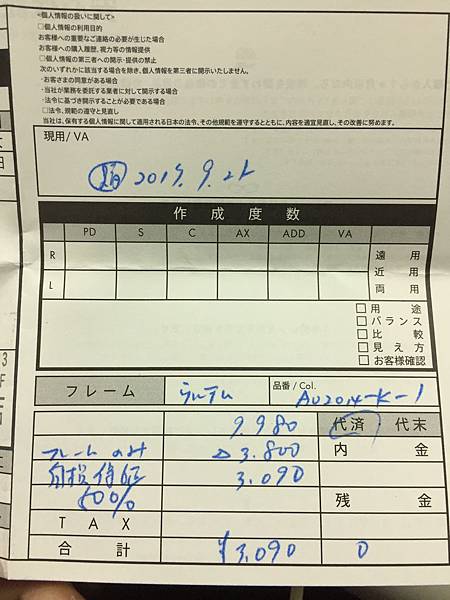 <個人情報の扱いに関して>
□個人情報の利用目的
お客様への重要なご連絡の必要が生じた場合
お客様への購入履歴、視力等の情報提供
□個人情報の第三者への開示・提供の禁止
次のいずれかに該当する場合を除き、個人情報を第三者に開示いたしません。
・お客さまの同意がある場合
・当社が業務を委託する業者に対して開示する場合
・法令に基づき開示することが必要である場合
□法令、規範の遵守と見直し
当社は、保有する個人情報に関して適用される日本の法令、その他規範を遵守するとともに、内容を適宜見直し、その改善に努めます。
現用/VA
作成度数
PD S C AX ADD VA
R 遠用
近用
L 両用
□用途
□バランス
□比較
□見え方
□お客様確認
フレーム 品番/Col. AU2014-K-1
9.980 代済 代未
フレームのみ △3.800 内金
自損保証 3.090
50% 残金
TAX
合計 ¥3,090 0